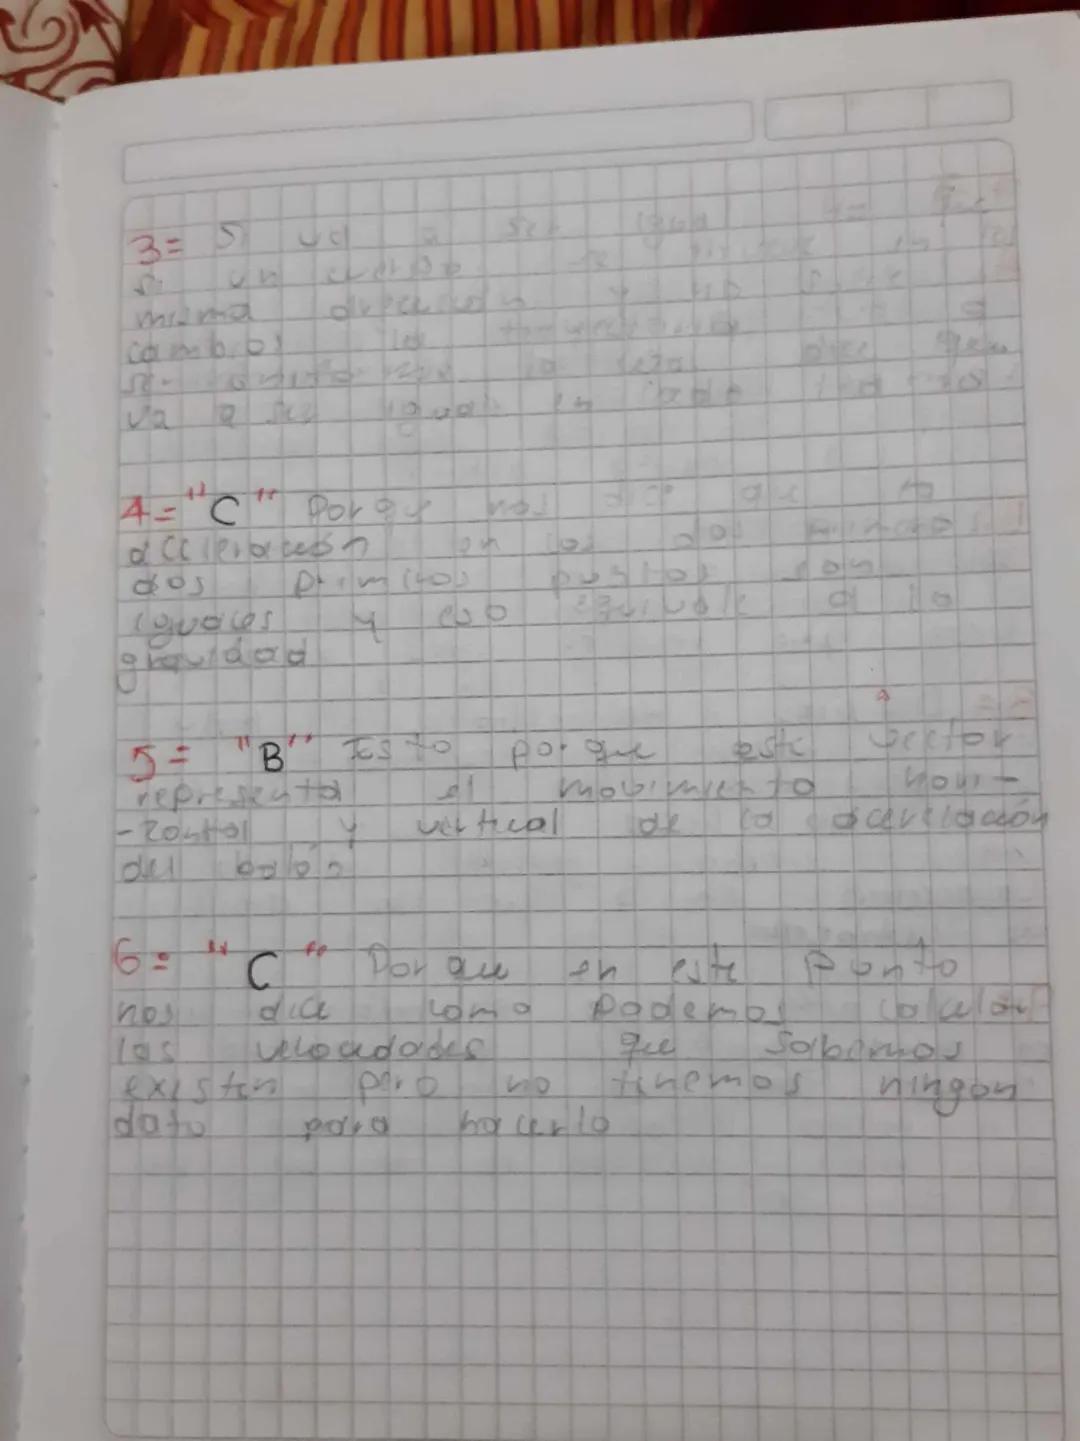 3= Si va a ser igual
si un cuerpo se mueve en la
misma dirección y no
cambios la trayectoria
va a ser igual en cada
4= "C" Porque nos dice que la
acceleración en los dos
dos primeros puntos son
iguales y eso equivale a la
gravidad
5= "B" Esto porque este vector
representa el movimiento hori-
-zontal y vertical de la aceleración
del balón
6= "C" Porque en este punto
nos dice como podemos calcular
las velocidades que sabemos
existen pero no tenemos ningún
dato para hacerlo